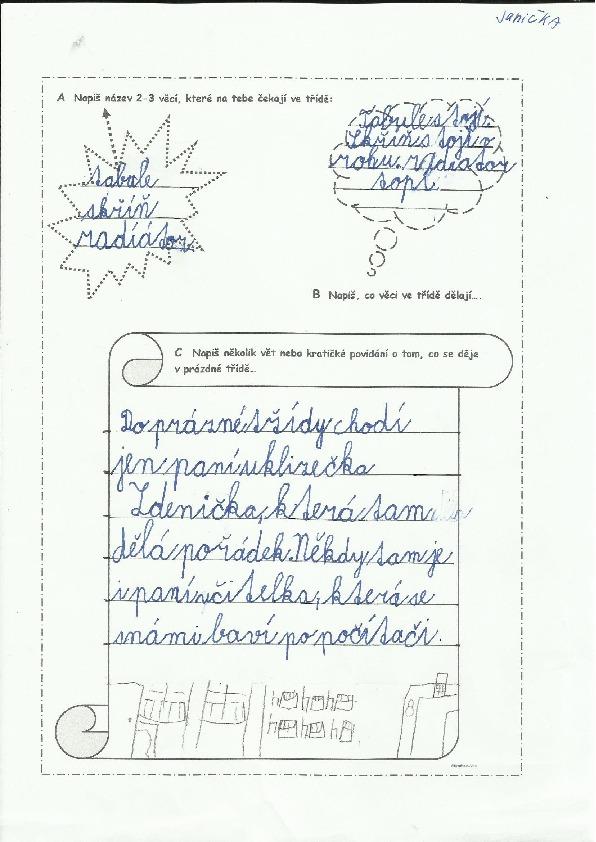 Janička
A Napiš název 2-3 věcí, které na tebe čekají ve třídě:
tabule
skříň
radiátor
Tabule s tojí.
Skříň s tojí v
rohu. radiator
topí.
B Napiš, co věci ve třídě dělají….
C Napiš několik vět nebo kratičké povídání o tom, co se děje
v prázdné třídě…
Do prázné třídy chodí
jen paní uklizečka
Zdenička, která tam
dělá pořádek. Někdy tam je
i paní učitelka, která se
snámi baví po počítači.